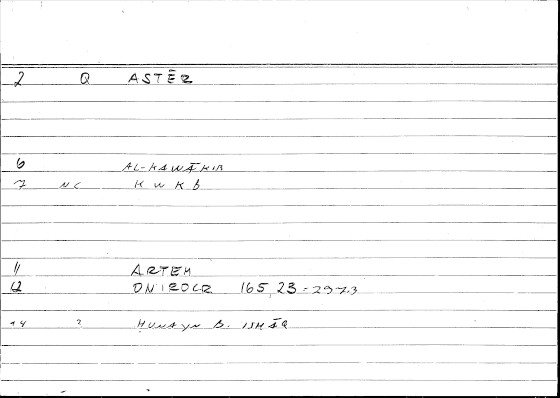 2 Q ASTĒR
6 AL-KAWĀKIB
7 NC KWKB
11 ARTEM
12 ONIROCR 165,23-
14 ? ḤUNAYN B. ISḤĀQ